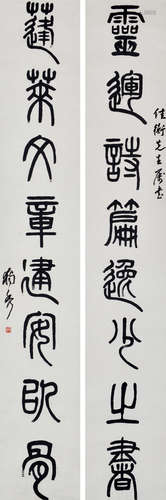 靈運詩篇逸少之書
先生屬
蓬萊文章建安骨